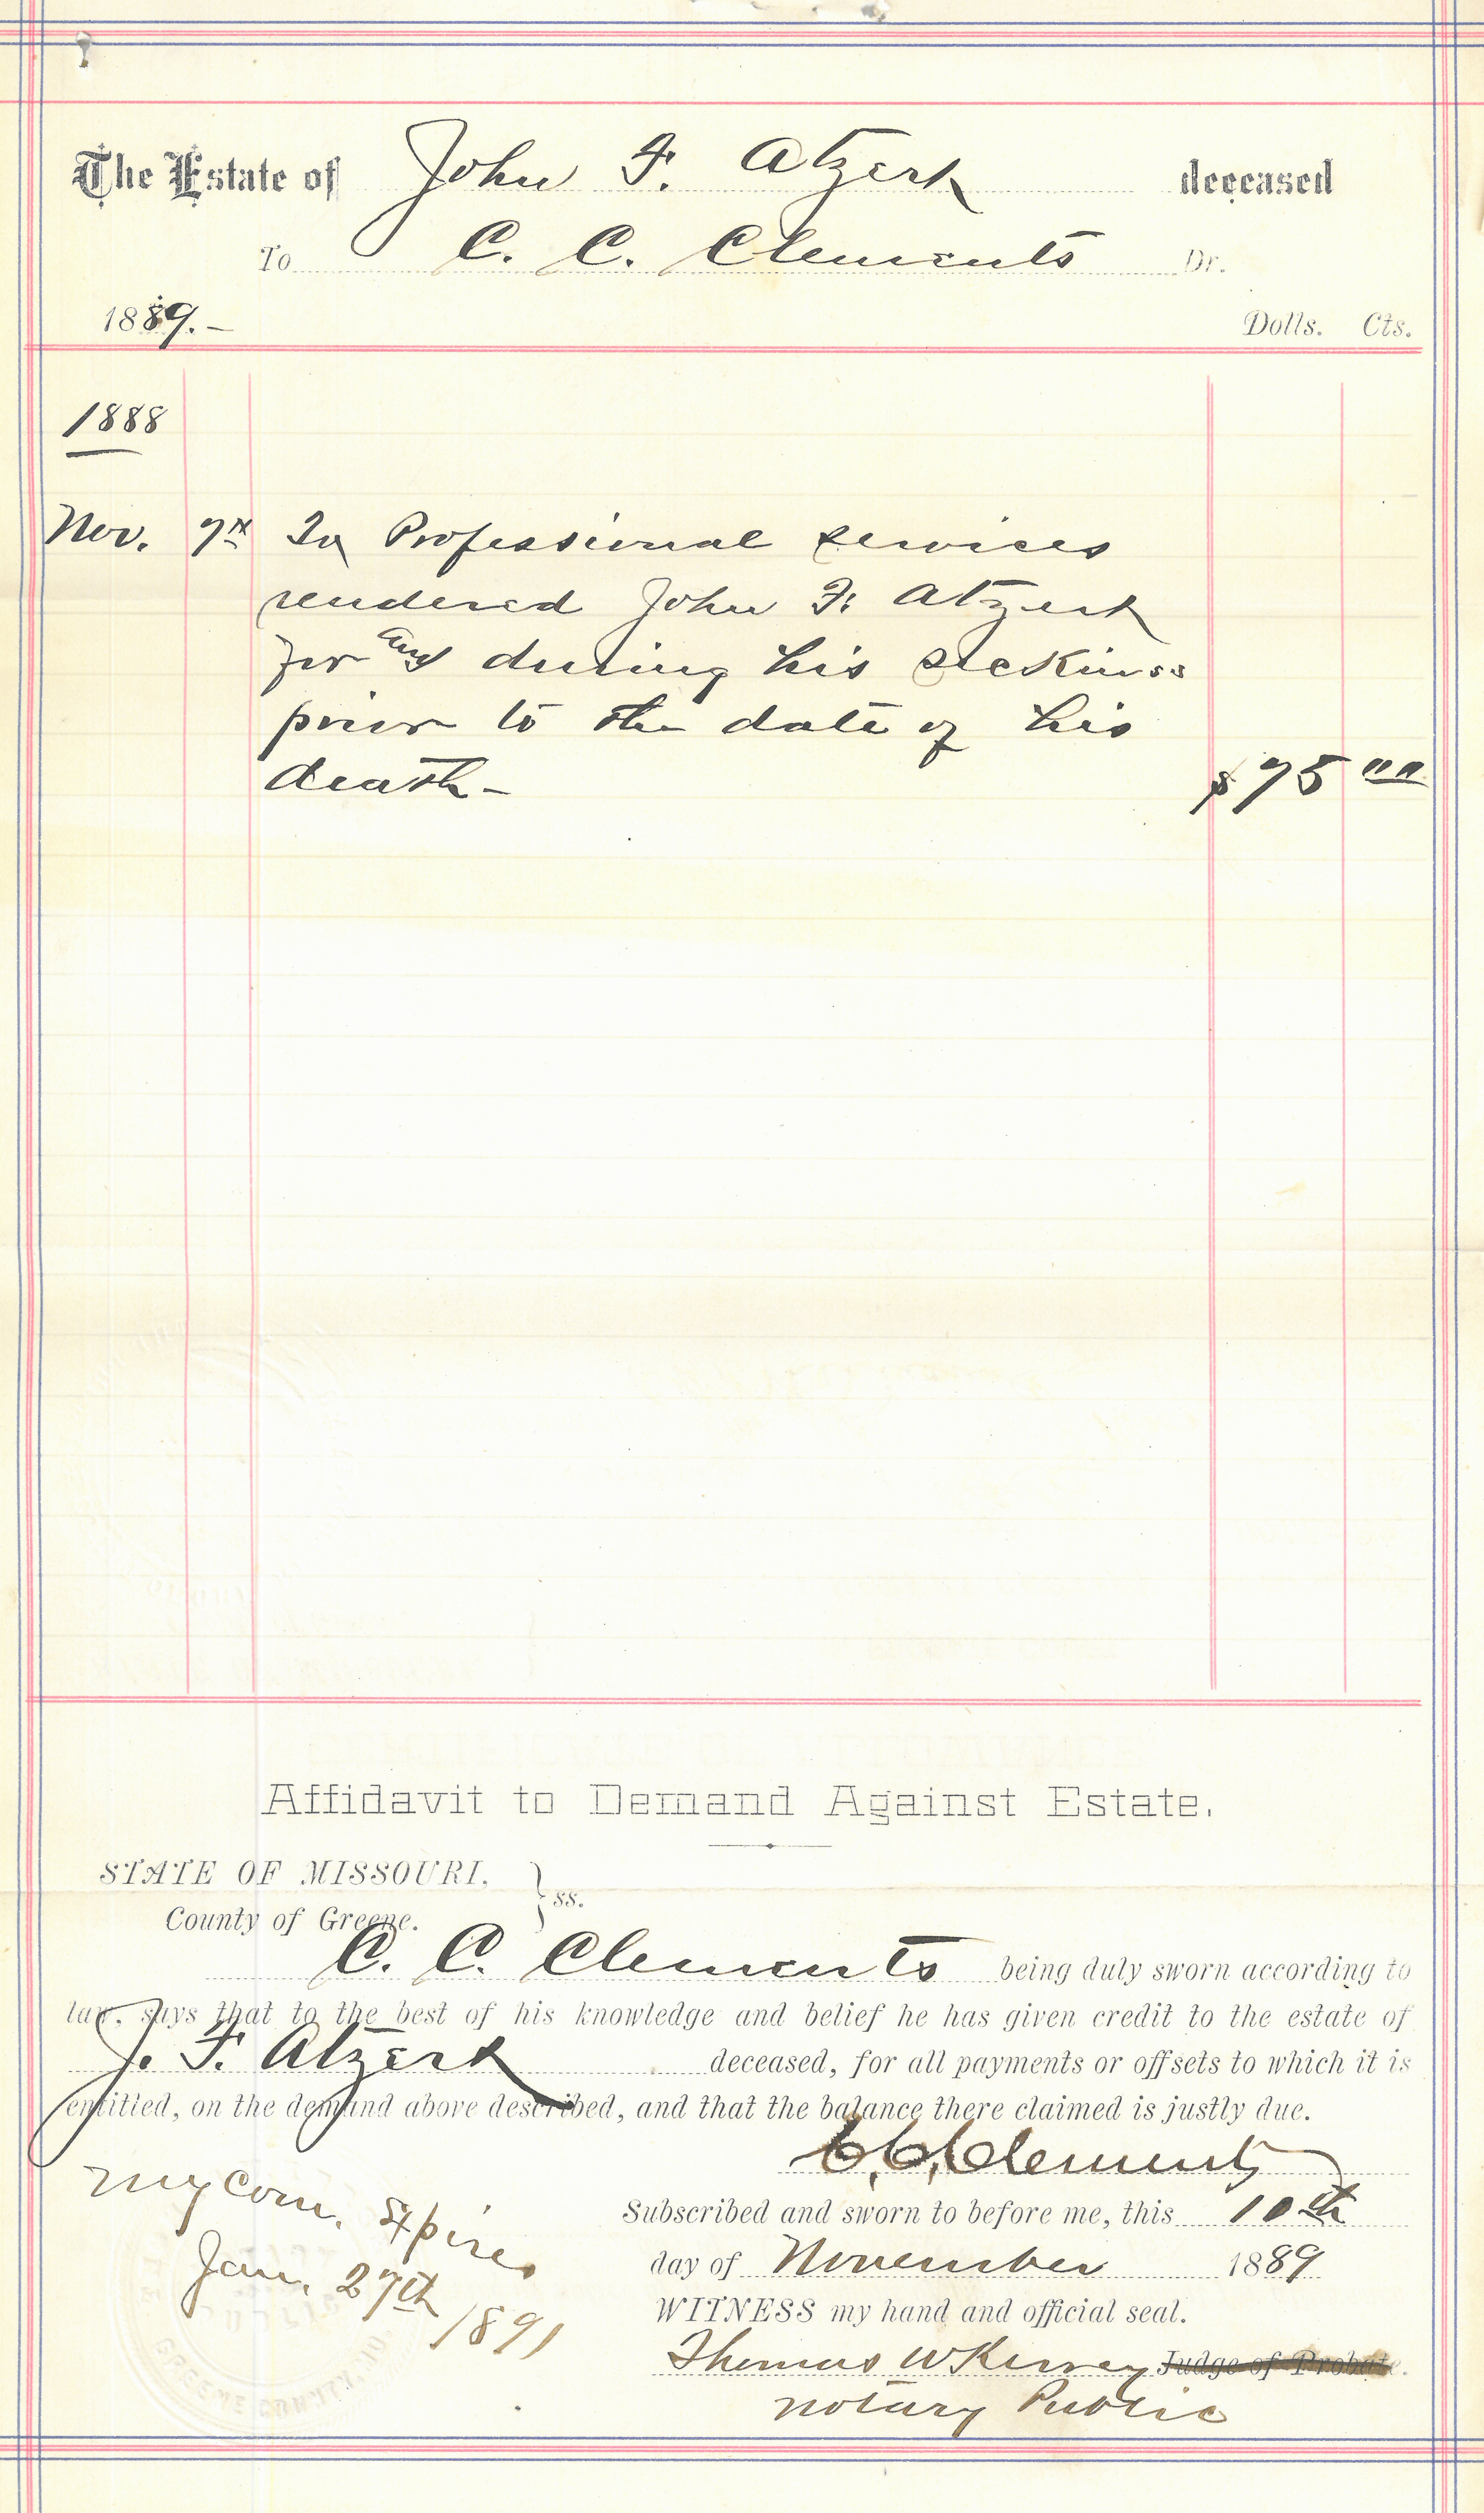 The Estate of John F. Atzert deceased
To C. C. Clements Dr.
1889.- Dolls. Cts.
1888
Nov. 7th To Professional services
rendered John F. Atzert
for and during his sickness
prior to the date of his
death- $75 00
Affidavit to Demand Against Estate.
STATE OF MISSOURI,
County of Greene. } ss.
C. C. Clements being duly sworn according to
law, says that to the best of his knowledge and belief he has given credit to the estate of
J. F. Atzert deceased, for all payments or offsets to which it is
entitled, on the demand above described, and that the balance there claimed is justly due.
C. C. Clements
My Com. Expires
Jan. 27th
1891
Subscribed and sworn to before me, this 10th
day of November 1889
WITNESS my hand and official seal.
Thomas W Kersey Judge of Probate.
Notary Public
GREENE COUNTY, MO.